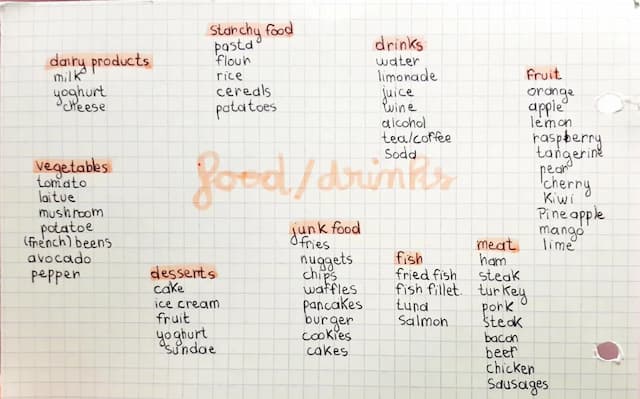 dairy products
milk
yoghurt
cheese
starchy food
pasta
flour
rice
cereals
potatoes
drinks
water
limonade
juice
wine
alcohol
tea/coffee
soda
fruit
orange
apple
lemon
raspberry
tangerine
pear
cherry
kiwi
Pineapple
mango
lime
food/drinks
vegetables
tomato
laitue
mushroom
potatoe
(french) beens
avocado
pepper
desserts
cake
ice cream
fruit
yoghurt
sundae
junk food
fries
nuggets
chips
waffles
pancakes
burger
cookies
cakes
fish
fried fish
fish fillet.
tuna
salmon
meat
ham
steak
turkey
pork
steak
bacon
beef
chicken
sausages